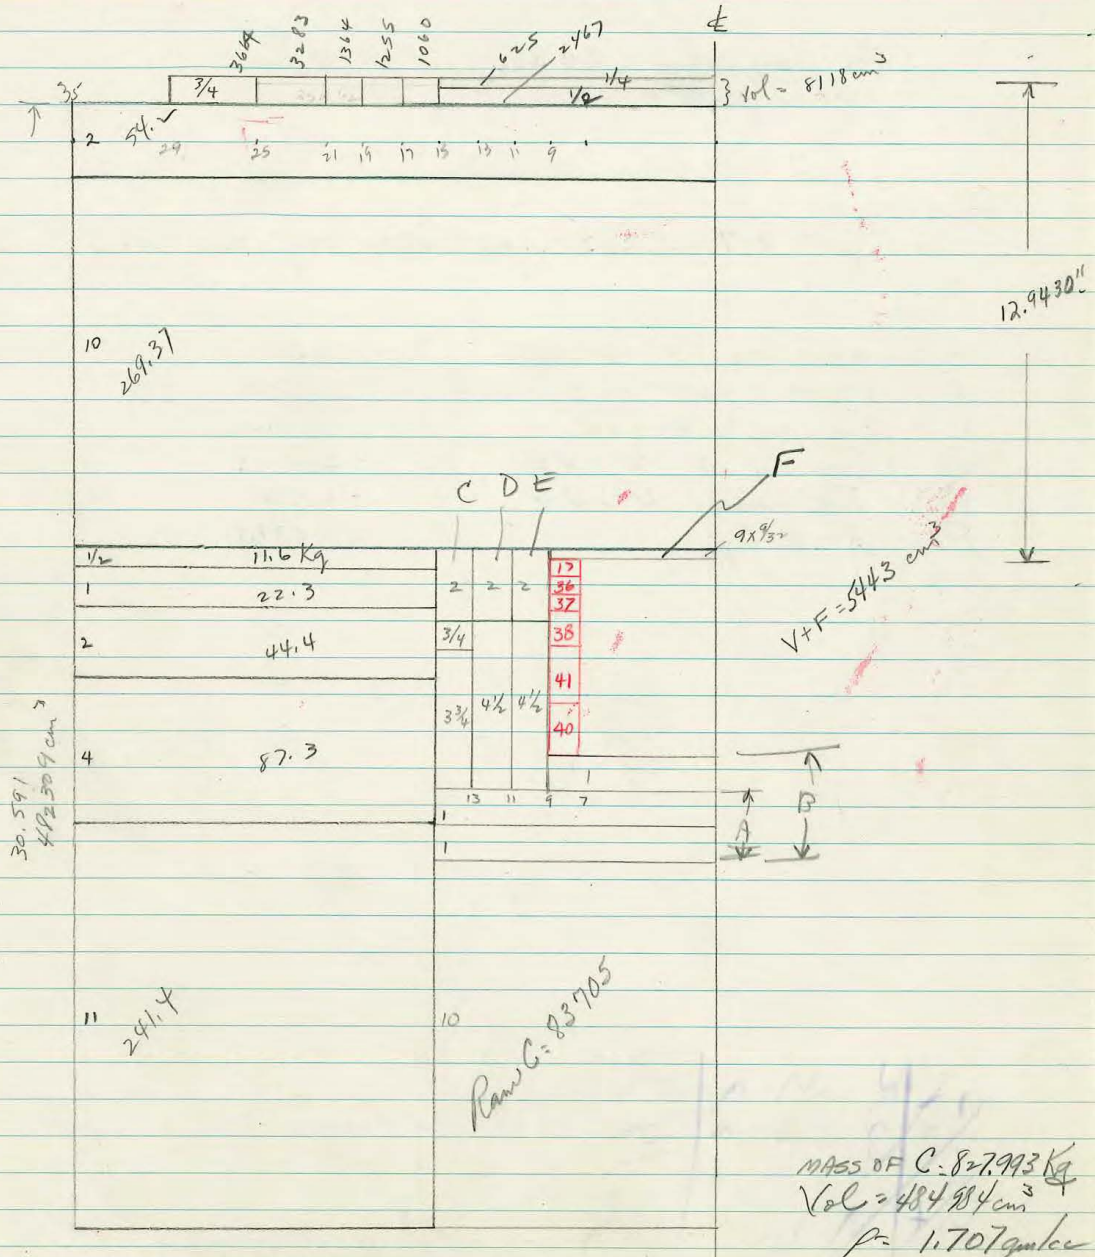 3664 3283 1364 1255 1060 625 2467 ℄
3/4 1/4
1/2
} Vol = 8118 cm³
35
2 54.2
29 25 21 19 17 15 13 11 9
12.9430"
10 269.37
C D E F
9x9/32
1/2 11.6 Kg
1 22.3
2 44.4
4 87.3
2 2 2
3/4
3 3/4 4 1/2 4 1/2
17
36
37
38
41
40
V+F = 5443 cm³
1
13 11 9 7
1
1
A B
30.591
482309 cm³
11 241.4
10 Ram C = 83705
MASS OF C = 827.993 Kg
Vol = 484984 cm³
ρ = 1.707 gm/cc